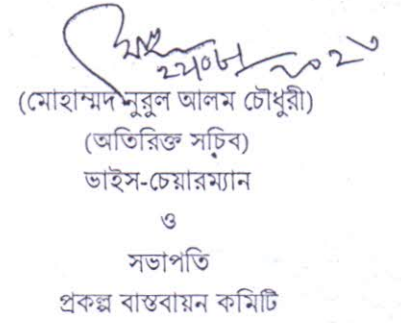 ২২/০৮/২০২৩
(মোহাম্মদ নুরুল আলম চৌধুরী)
(অতিরিক্ত সচিব)
ভাইস-চেয়ারম্যান
ও
সভাপতি
প্রকল্প বাস্তবায়ন কমিটি